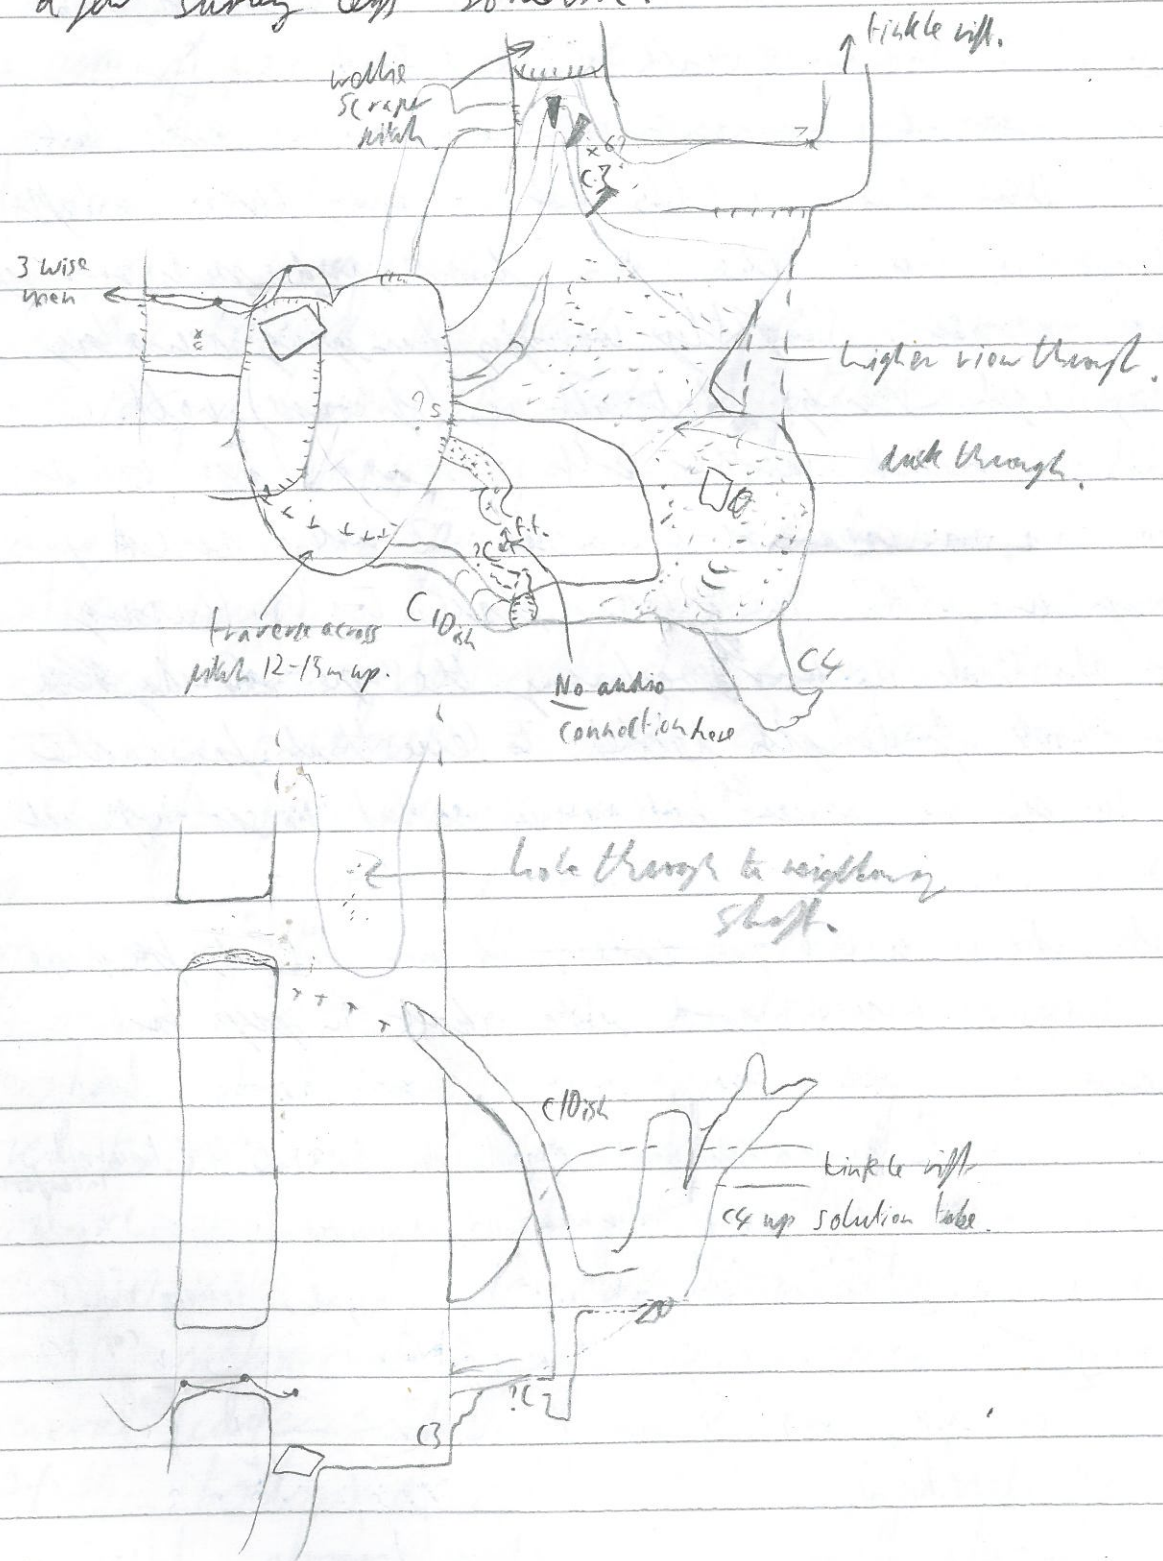 a few survey legs
tinkle rift.
wollie
scraper
pitch.
x 6?
C3
3 wise
men
higher view through.
duck through.
?s
f.t.
?C
C10ish
C4
traverse across
pitch 12-15m up.
No audio
connection here
hole through to neighbouring
shaft.
C10ish
tinkle rift
C4 up solution tube.
?C2
C3